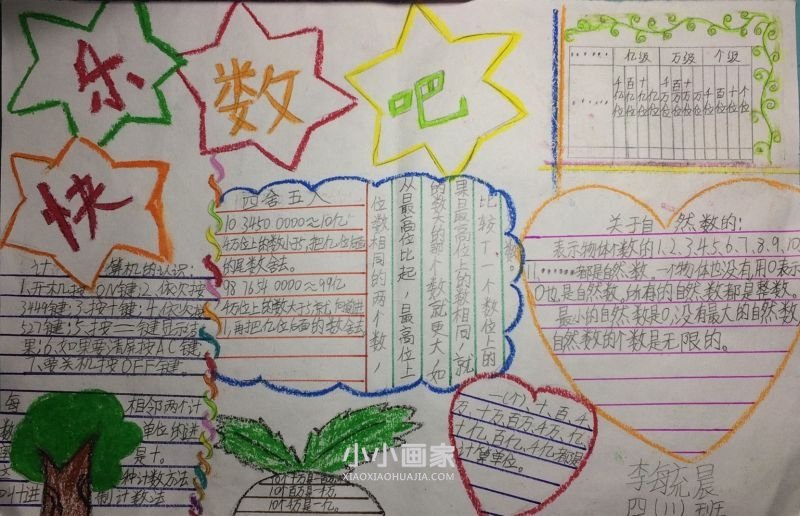 快乐数吧
······
亿级
万级
个级
千百十亿千百十万千百十个
亿亿亿位万万万位位位位位
四舍五入
10 3450 0000≈10亿
千万位上的数小于5,把亿位后面
的尾数舍去。
98 7654 0000≈99亿
1,再把亿位后面的数舍去
位数相同的两个数,
从最高位比起,最高位上
的数大的那个数就更大,如
果最高位上的数相同,就
比较下一个数位上的
数。
关于自然数的:
表示物体个数的1、2、3、4、5、6、7、8、9、10
11······都是自然数。一个物体也没有用0表示
0也是自然数。所有的自然数都是整数。
最小的自然数是0,没有最大的自然数
自然数的个数是无限的。
计算机的认识:
1.开机按ON键;2.依次按
3449键;3.按十键;4.依次按
527键;5.按=键显示结
果;6.如果要清屏按AC键。
要关机按OFF键。
每相邻两个计
数单位的进
是十。
种计数方法
叫十进制计数法
10个十万是一百万。
10个百万是一千万。
10个千万是一亿。
一(个)、十、百、千
万、十万、百万、千万、亿、
十亿、百亿、千亿都是
计算单位。
小小画家
XIAOXIAOHUAJIA.COM
四(11)班